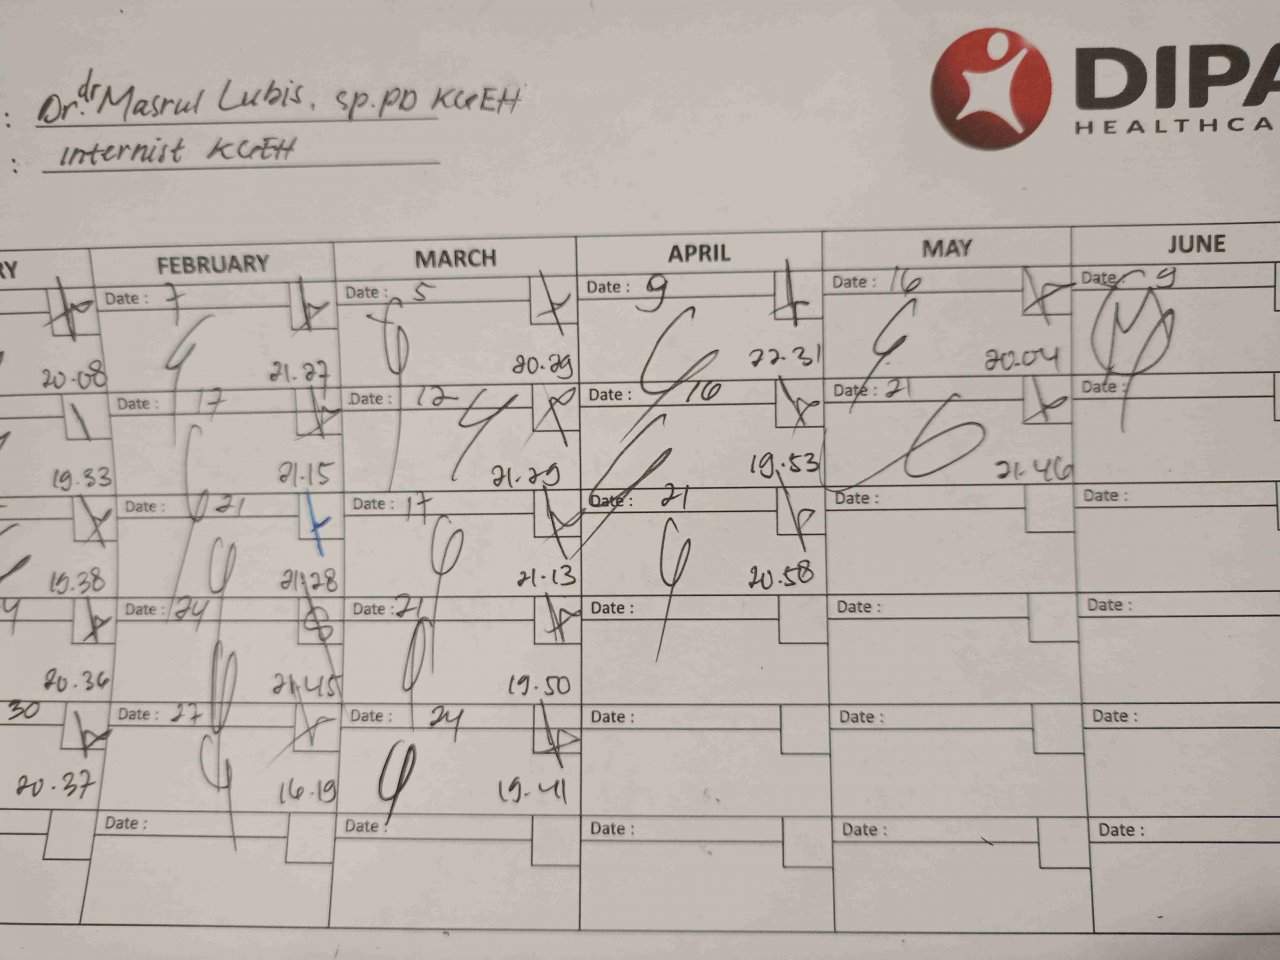 : Dr.dr Masrul Lubis, sp.PD KGEH
: Internist KGEH
DIPA
HEALTHCA
RY FEBRUARY MARCH APRIL MAY JUNE
Date : 7 Date : 5 Date : 9 Date : 16 Date 9
20.08 21.27 20.29 22.31 20.04
Date : 17 Date : 12 Date : 16 Date : 21 Date :
19.33 21.15 21.29 19.53 21.46
Date : 21 Date : 17 Date : 21 Date : Date :
19.38 21.28 21.13 20.58
Date : 24 Date : 21 Date : Date : Date :
20.36 21.45 19.50
30 Date : 27 Date : 24 Date : Date : Date :
20.37 16.19 19.41
Date : Date : Date : Date : Date :